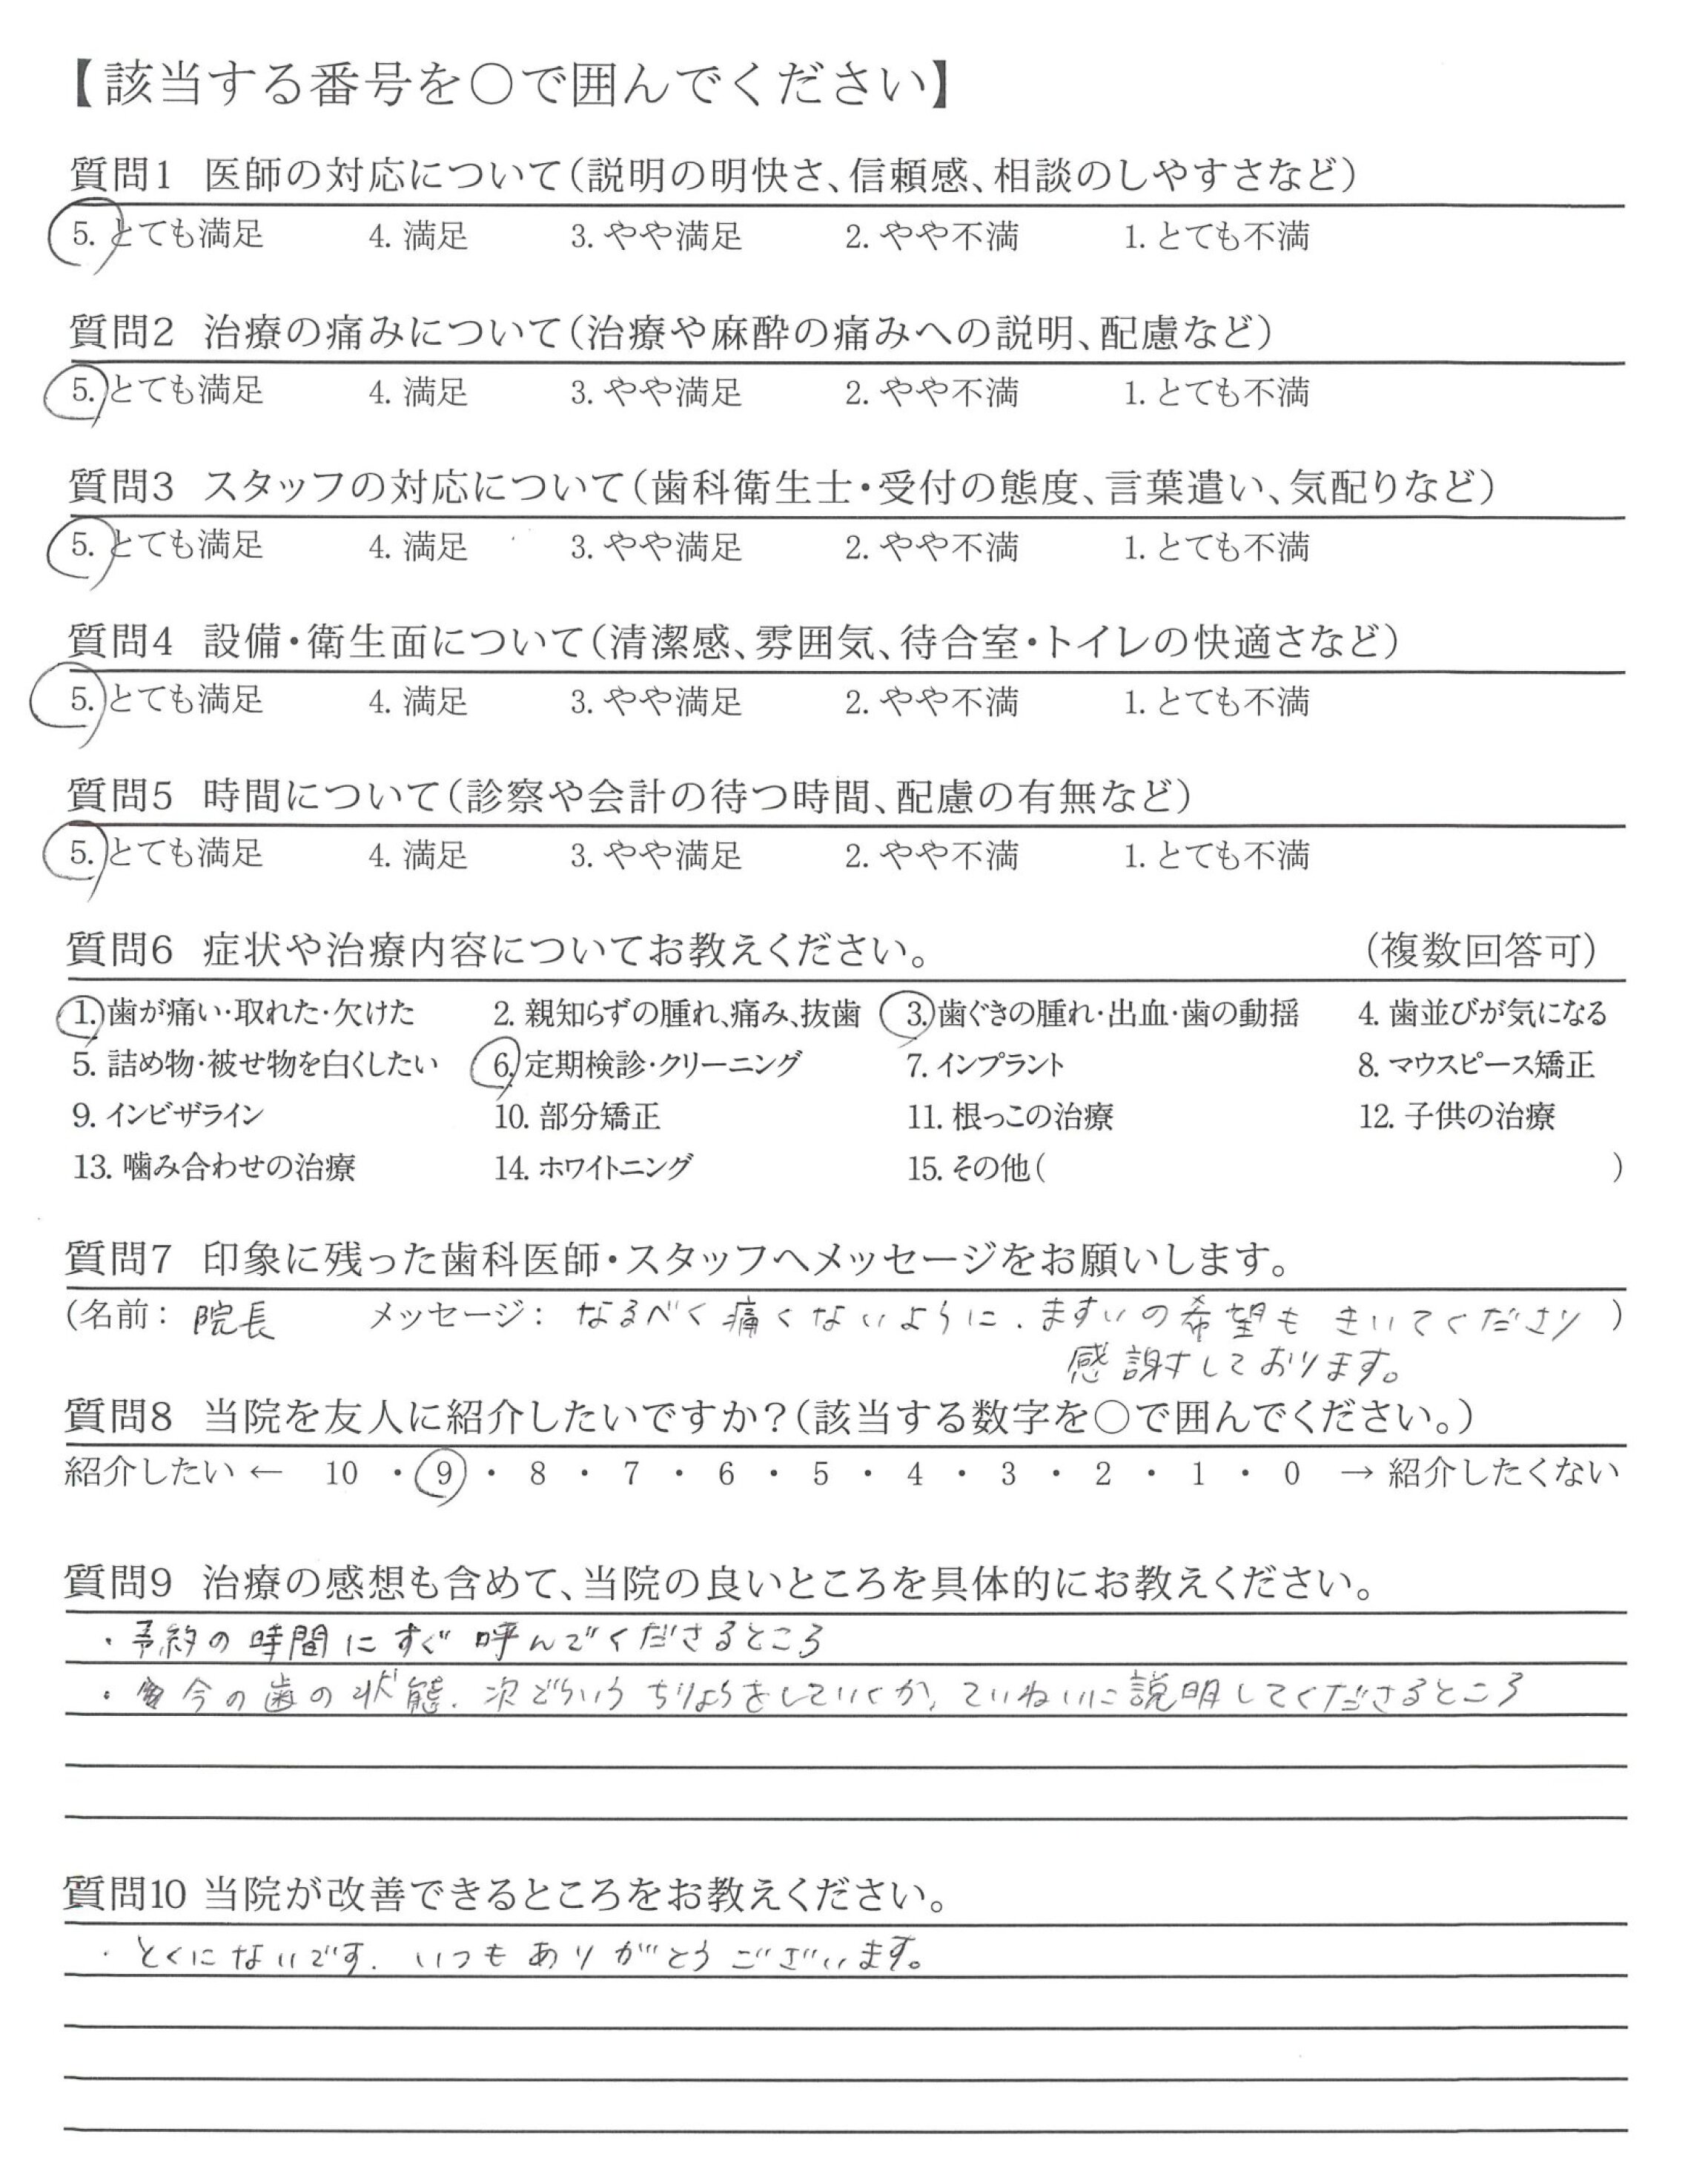 【該当する番号を○で囲んでください】
質問1 医師の対応について(説明の明快さ、信頼感、相談のしやすさなど)
5. とても満足 4. 満足 3. やや満足 2. やや不満 1. とても不満
質問2 治療の痛みについて(治療や麻酔の痛みへの説明、配慮など)
5. とても満足 4. 満足 3. やや満足 2. やや不満 1. とても不満
質問3 スタッフの対応について(歯科衛生士・受付の態度、言葉遣い、気配りなど)
5. とても満足 4. 満足 3. やや満足 2. やや不満 1. とても不満
質問4 設備・衛生面について(清潔感、雰囲気、待合室・トイレの快適さなど)
5. とても満足 4. 満足 3. やや満足 2. やや不満 1. とても不満
質問5 時間について(診察や会計の待つ時間、配慮の有無など)
5. とても満足 4. 満足 3. やや満足 2. やや不満 1. とても不満
質問6 症状や治療内容についてお教えください。 (複数回答可)
1. 歯が痛い・取れた・欠けた 2. 親知らずの腫れ、痛み、抜歯 3. 歯ぐきの腫れ・出血・歯の動揺 4. 歯並びが気になる
5. 詰め物・被せ物を白くしたい 6. 定期検診・クリーニング 7. インプラント 8. マウスピース矯正
9. インビザライン 10. 部分矯正 11. 根っこの治療 12. 子供の治療
13. 噛み合わせの治療 14. ホワイトニング 15. その他( )
質問7 印象に残った歯科医師・スタッフへメッセージをお願いします。
(名前: 院長 メッセージ: なるべく痛くないように、ますいの希望もきいてくださり )
感謝しております。
質問8 当院を友人に紹介したいですか?(該当する数字を○で囲んでください。)
紹介したい ← 10 ・ 9 ・ 8 ・ 7 ・ 6 ・ 5 ・ 4 ・ 3 ・ 2 ・ 1 ・ 0 → 紹介したくない
質問9 治療の感想も含めて、当院の良いところを具体的にお教えください。
・予約の時間にすぐ呼んでくださるところ
・今の歯の状態、次どういうちりょうをしていくか、ていねいに説明してくださるところ
質問10 当院が改善できるところをお教えください。
・とくにないです。いつもありがとうございます。